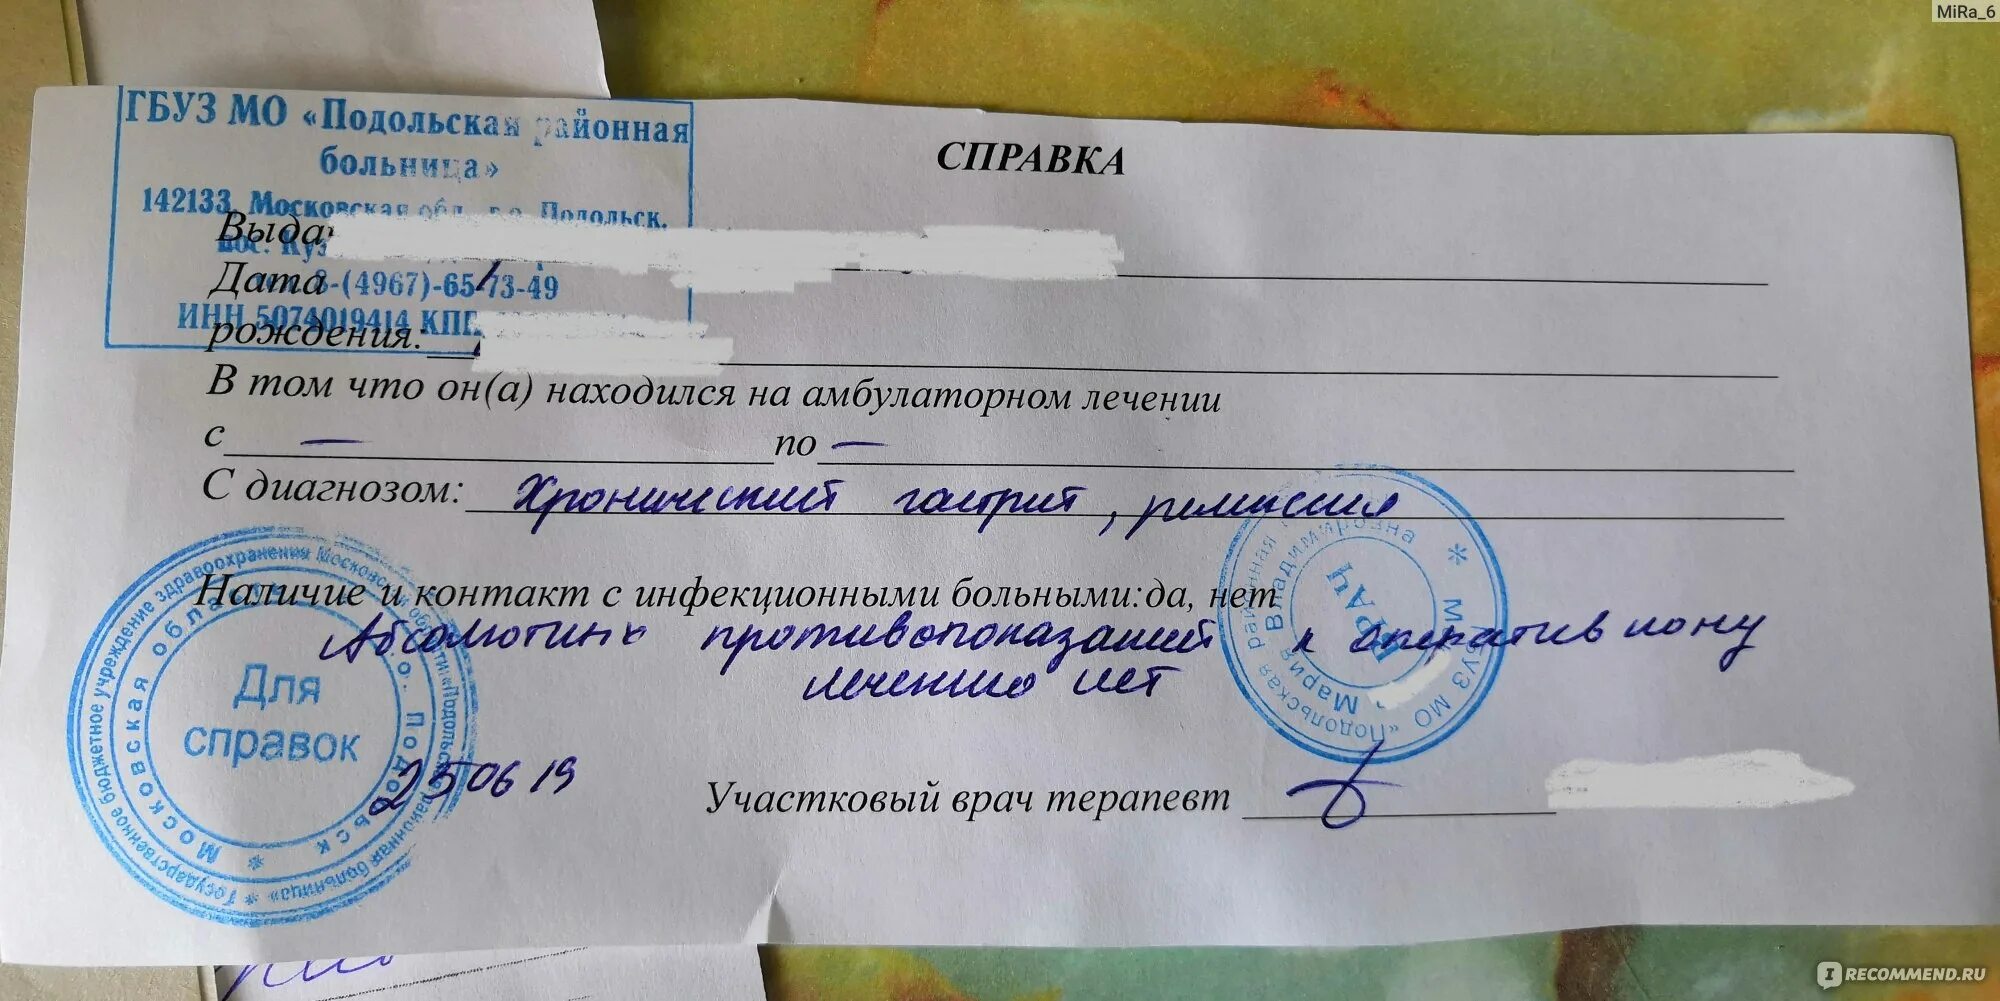 MiRa_6
ГБУЗ МО «Подольская районная
больница»
СПРАВКА
142133, Московская обл., г.о. Подольск,
пос.
Выда
8-(4967)-65-73-49
Дата
ИНН 5074019414 КПП
рождения:
В том что он(а) находился на амбулаторном лечении
с — по —
С диагнозом: Хронический гастрит, ремиссия
Наличие и контакт с инфекционными больными:да, нет
Абсолютных противопоказаний к оперативному
лечению нет
25 06 19
Участковый врач терапевт
Государственное бюджетное учреждение здравоохранения Московской области «Подольская районная больница»
Московская область г.о. Подольск
Для
справок
ГБУЗ МО «Подольская районная
Мария Владимировна
ВРАЧ
IRECOMMEND.RU